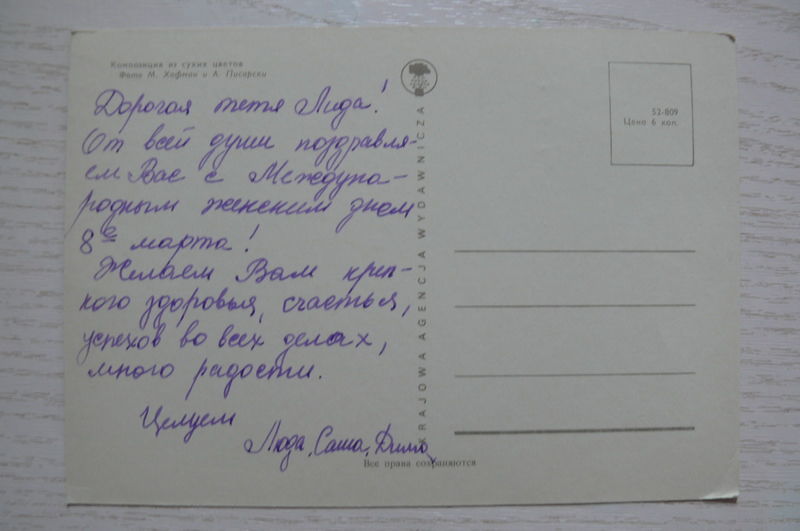 Композиция из сухих цветов
Фото М. Хофман и А. Писарски
Дорогая тетя Лида!
От всей души поздравля-
ем Вас с Междуна-
родным женским днем
8е марта!
Желаем Вам креп-
кого здоровья, счастья,
успехов во всех делах,
много радости.
Целуем
Люда, Саша, Дима
KRAJOWA AGENCJA WYDAWNICZA
52-809
Цена 6 коп.
Все права сохраняются